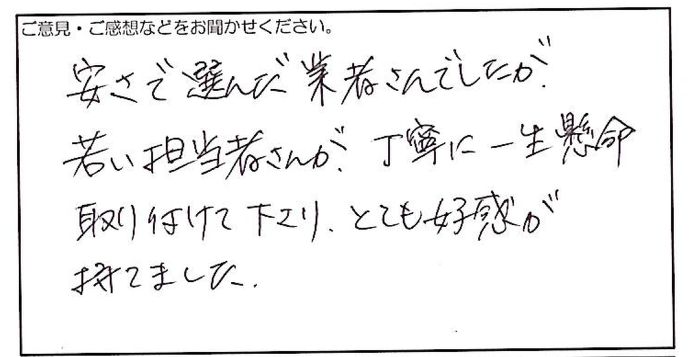 ご意見・ご感想などをお聞かせください。
安さで選んだ業者さんでしたが、
若い担当者さんが、丁寧に一生懸命
取り付けて下さり、とても好感が
持てました。